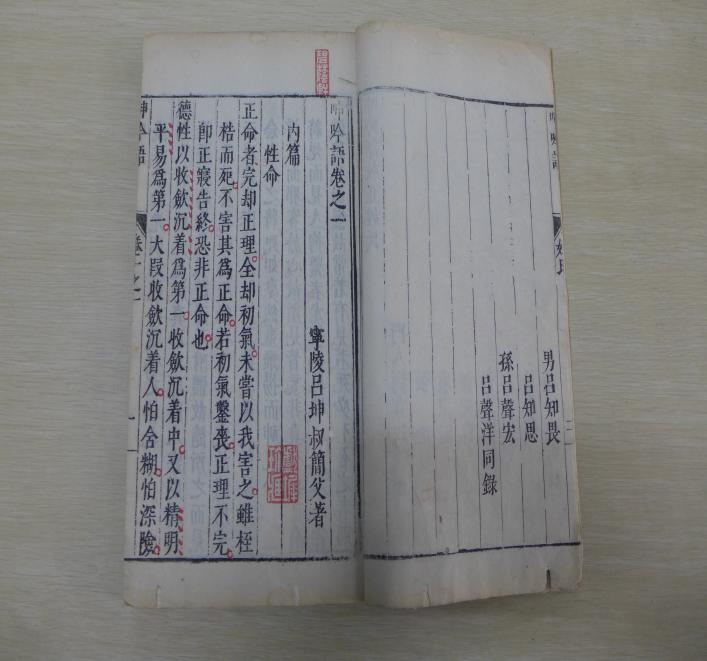 男呂知畏
呂知思
孫呂聲宏
呂聲洋同錄
呻吟語卷之一
寧陵呂坤叔簡父著
內篇
性命
正命者完却正理全却初氣未嘗以我害之雖桎
梏而死不害其為正命若初氣鑿喪正理不完
卽正寢告終恐非正命也
德性以收斂沉着為第一收斂沉着中又以精明
平易為第一大段收斂沉着人怕含糊怕深險
呻吟語
卷一之一
一